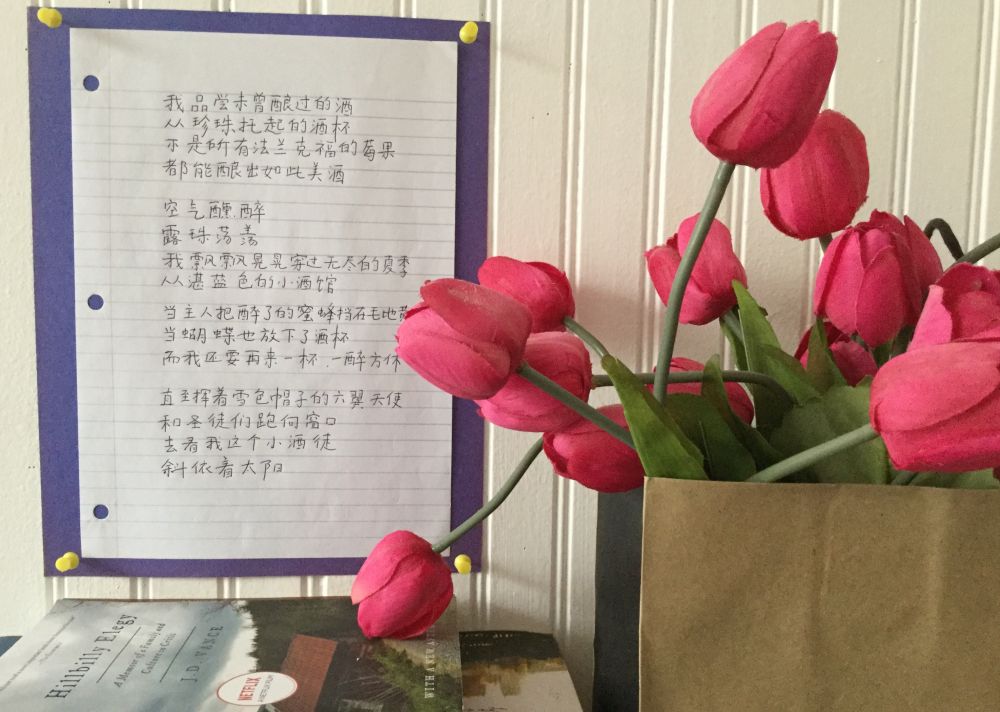 我品尝未曾酿过的酒
从珍珠托起的酒杯
不是所有法兰克福的莓果
都能酿出如此美酒
空气醺醉
露珠荡漾
我飘飘晃晃穿过无尽的夏季
从湛蓝色的小酒馆
当主人把醉了的蜜蜂挡在毛地黄
当蝴蝶也放下了酒杯
而我还要再来一杯.一醉方休
直至挥着雪色帽子的六翼天使
和圣徒们跑向窗口
去看我这个小酒徒
斜依着太阳
Hillbilly Elegy
A Memoir of a Family and
Culture in Crisis
J.D. VANCE
NETFLIX
WITH A NEW